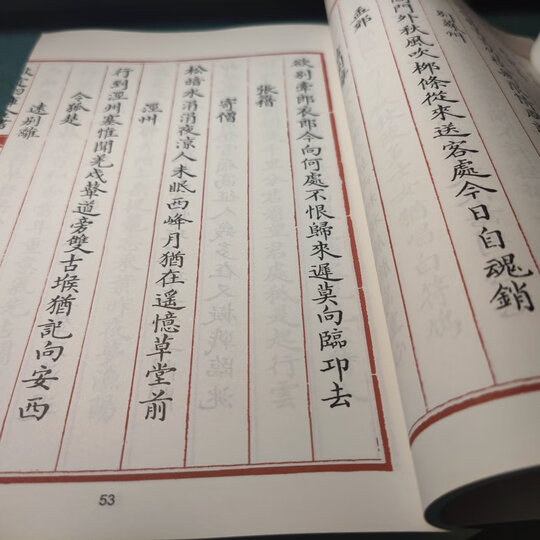 門外秋風吹柳條從來送客處今日自魂銷
孟郊
欲別牽郎衣郎今向何處不恨歸來遲莫向臨卭去
張籍
寄僧
松暗水涓涓夜涼人未眠西峰月猶在遥憶草堂前
涇州
行到涇州塞惟聞羌戍鼙道旁雙古堠猶記向安西
令狐楚
遠別離
53